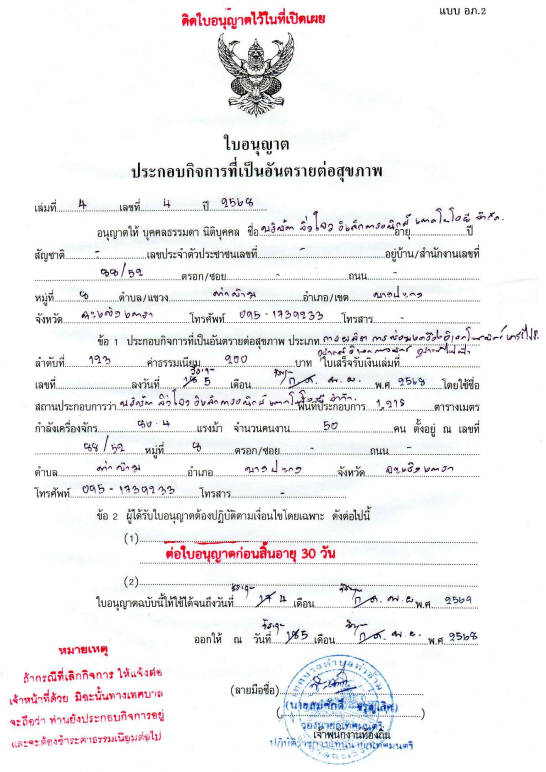 แบบ อภ.2
ติดใบอนุญาตไว้ในที่เปิดเผย
ใบอนุญาต
ประกอบกิจการที่เป็นอันตรายต่อสุขภาพ
เล่มที่ 4 เลขที่ 4 ปี 2568
อนุญาตให้ บุคคลธรรมดา นิติบุคคล ชื่อ บริษัท อิเล็กทรอนิกส์ เทคโนโลยี จำกัด อายุ ปี
สัญชาติ - เลขประจำตัวประชาชนเลขที่ - อยู่บ้าน/สำนักงานเลขที่
88/52 ตรอก/ซอย - ถนน -
หมู่ที่ 8 ตำบล/แขวง ท่าข้าม อำเภอ/เขต บางปะกง
จังหวัด ฉะเชิงเทรา โทรศัพท์ 095-1739233 โทรสาร -
ข้อ 1 ประกอบกิจการที่เป็นอันตรายต่อสุขภาพ ประเภท การผลิต การซ่อม
ลำดับที่ 123 ค่าธรรมเนียม 200 บาท ใบเสร็จรับเงินเล่มที่
เลขที่ ลงวันที่ 5 เดือน พ.ศ. 2568 โดยใช้ชื่อ
สถานประกอบการว่า บริษัท อิเล็กทรอนิกส์ เทคโนโลยี จำกัด พื้นที่ประกอบการ 1,218 ตารางเมตร
กำลังเครื่องจักร 80.4 แรงม้า จำนวนคนงาน 50 คน ตั้งอยู่ ณ เลขที่
88/52 หมู่ที่ 8 ตรอก/ซอย - ถนน -
ตำบล ท่าข้าม อำเภอ บางปะกง จังหวัด ฉะเชิงเทรา
โทรศัพท์ 095-1739233 โทรสาร -
ข้อ 2 ผู้ได้รับใบอนุญาตต้องปฏิบัติตามเงื่อนไขโดยเฉพาะ ดังต่อไปนี้
(1)
ต่อใบอนุญาตก่อนสิ้นอายุ 30 วัน
(2)
ใบอนุญาตฉบับนี้ให้ใช้ได้จนถึงวันที่ 4 เดือน พ.ศ. 2569
ออกให้ ณ วันที่ 5 เดือน พ.ศ. 2568
หมายเหตุ
ถ้ากรณีที่เลิกกิจการ ให้แจ้งต่อ
เจ้าหน้าที่ด้วย มิฉะนั้นทางเทศบาล
จะถือว่า ท่านยังประกอบกิจการอยู่
และจะต้องชำระค่าธรรมเนียมต่อไป
(ลายมือชื่อ)
(นายสมศักดิ์ เจริญเลิศ)
รองนายกเทศมนตรี
เจ้าพนักงานท้องถิ่น
ปฏิบัติราชการแทน นายกเทศมนตรี